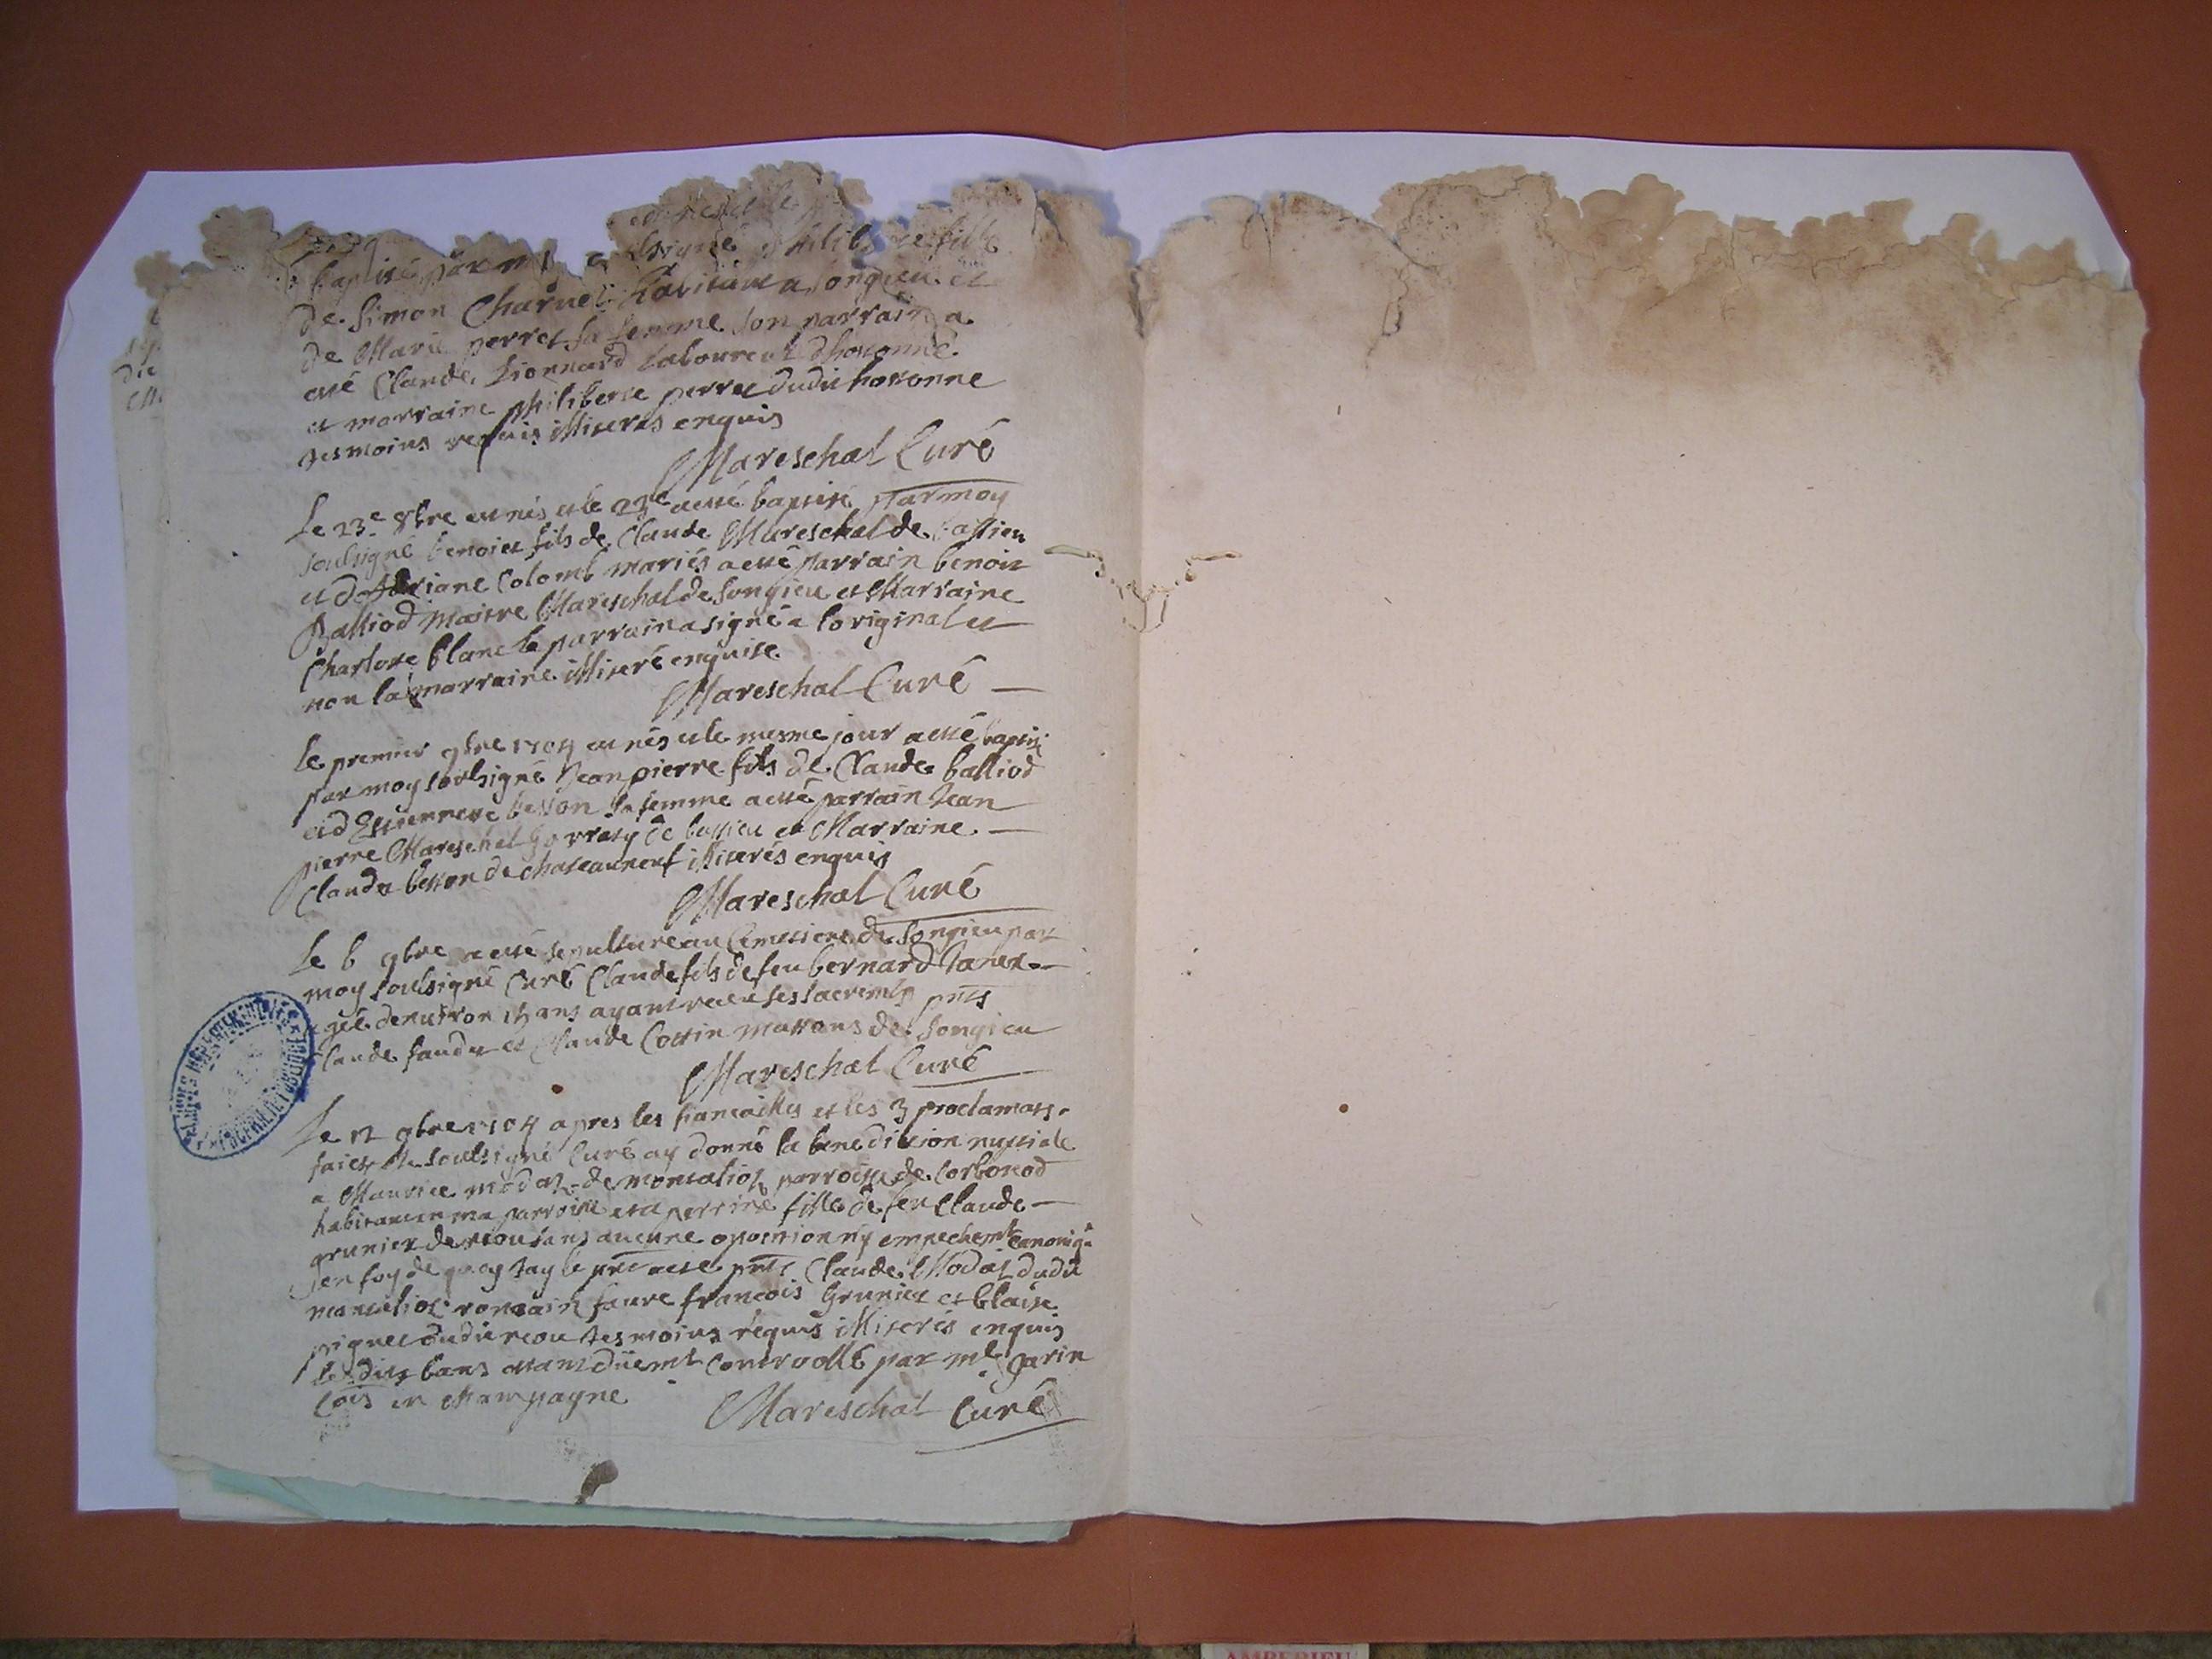 baptisé par m soubsigné philiberte fille
de Simon Charvet habitant a songieu et
de Marie perret sa femme son parrain a
esté Claude Lionnard laboureur dhotonne
et marraine philiberte perret dudit hotonne
tesmoins requis illiterés enquis
Mareschal Curé
Le 23e 8bre est nés et le 23e a esté baptisé par moy
soubsigné benoict fils de Claude Mareschal de bassieu
et dAdriane Colomb mariés a esté parrain benoit
Balliod maitre Mareschal de songieu et Marraine
Charlotte blanc le parrain a signé a loriginal et
non la marraine illiteré enquise
Mareschal Curé
Le premier 9bre 1704 est nés et le mesme jour a esté baptisé
par moy soubsigné Jean pierre fils de Claude balliod
et dEstiennete besson sa femme a esté parrain Jean
pierre Mareschal de bassieu et Marraine
Clauda besson de chateauneuf illiterés enquis
Mareschal Curé
Le 6 9bre a esté sepulturé au Cimetiere de Songieu par
moy soubsigné Curé Claude fils de feu bernard
agé denviron ans ayant receu ses sacremts pnts
Claude et Claude Cottin massons de Songieu
Mareschal Curé
Le 12 9bre 1704 apres les fiancailles et les 3 proclamats
faictes Je soubsigné Curé ay donné la benediction nuptiale
a Maurice modaz de parroisse de Corbonod
habitant en ma parroisse et a perrine fille de feu Claude
grunier de sans aucune oposition ny empechemt canoniq
en foy de quoy Jay le pnt acte pnts Claude Modaz dudit
romain favre francois Grunier et blaise
dudit tesmoins requis illiterés enquis
lesdits bans estant düemt controollé par me Jarin
en Champagne
Mareschal Curé